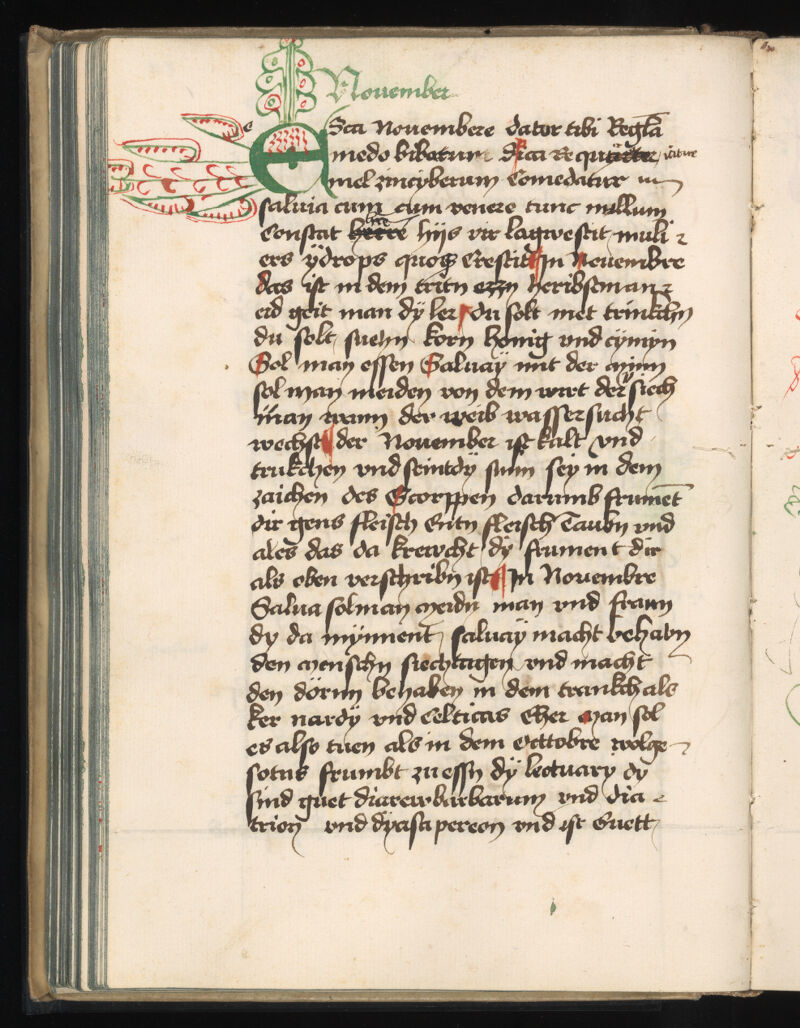 November
Esca Nouembere dator tibi Regla
medo bibatur dica re vitare
mel zinciberum Comedatur in
saluia cum cum venere tunc nullum
Constat hijs vir lagwestit muli
ers ÿdrops quoq Crestit In Nouembre
das ist in dem tritn heribstman
eid geit man dÿ ler du solt met trinkchn
du solt suechn korn honig vnd cÿmÿn
Sol man essen Saluaÿ mit der mÿnn
sol man meiden von dem wirt der siech
man wann der weib wassersucht
wechst der Nouember ist kalt vnd
trukchen vnd seintdÿ sunn seÿ in dem
zaichen des Scorppen darumb frument
dir gens fleisch Entn fleisch Taubn vnd
ales das da krewcht dÿ frument dir
als oben verschribn ist In Nouembre
Salua solman meidn man vnd frawn
dÿ da mÿnnent saluaÿ macht behabn
den menschn siechtagen vnd macht
den dörnn behaben in dem trankch als
ker nardÿ vnd Celticas Eher man sol
es also tuen als in dem Octtobre wolge
sotns frumbt zu essn dÿ lectuarÿ dÿ
sind guet diarewbarbarum vnd dia
trion vnd dÿasapereon vnd ist Guett